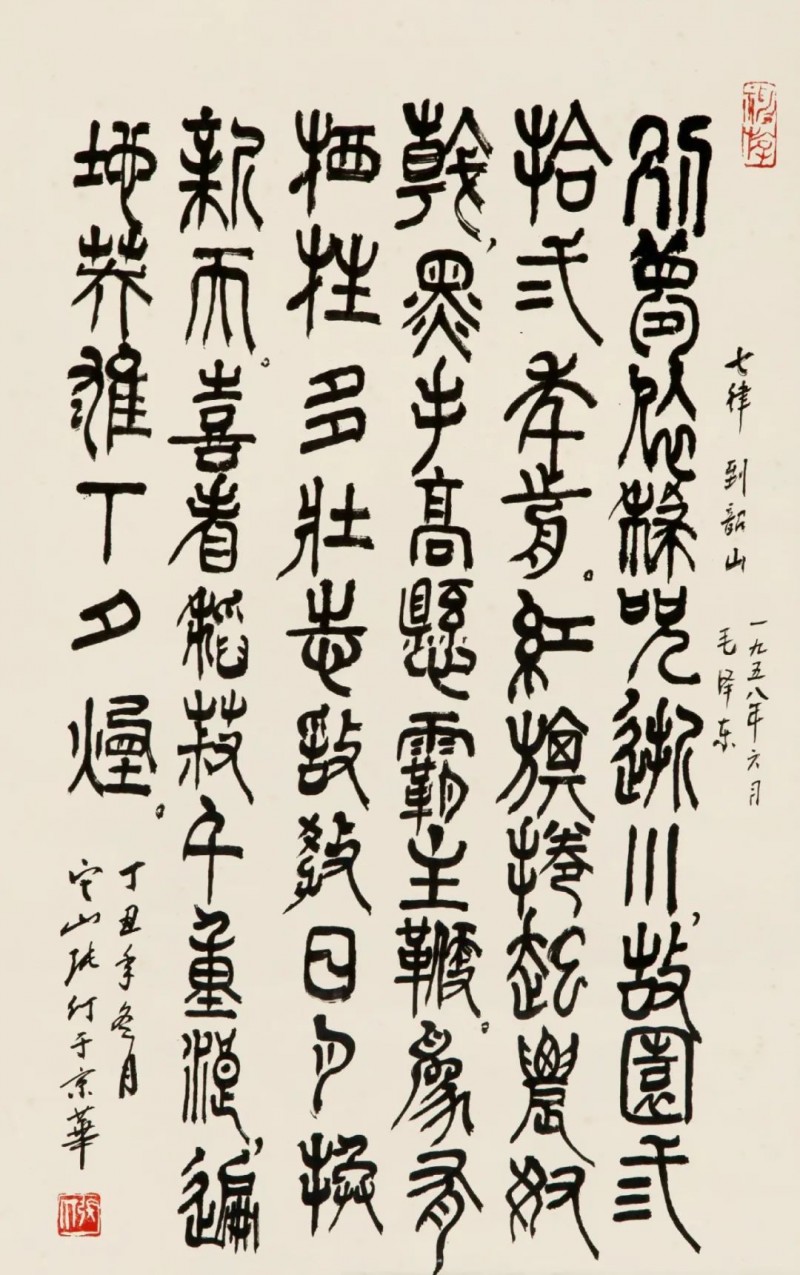 七律 到韶山
一九五八年六月
毛泽东
别夢依稀咒逝川,故園弎
拾弍年前。紅旗捲起農奴
戟,黑手高懸霸主鞭。為有
牺牲多壯志敢教日月換
新天。喜看稻菽千重浪,遍
地英雄下夕煙。
丁丑年冬月
它山张仃于京華